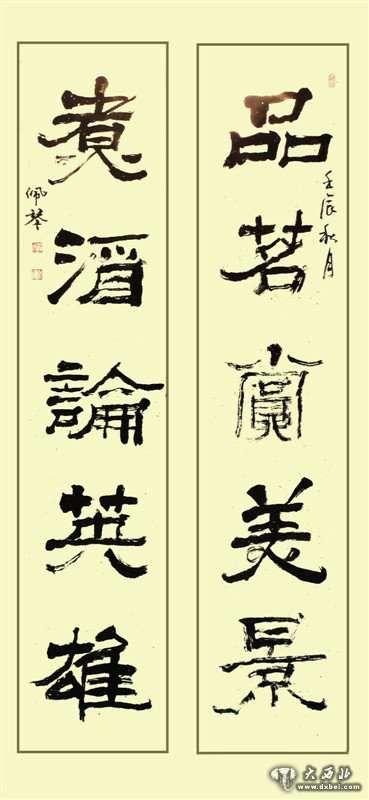 品茗賞美景
壬辰秋月
煮酒論英雄
佩琴
大西北
www.dxbei.com